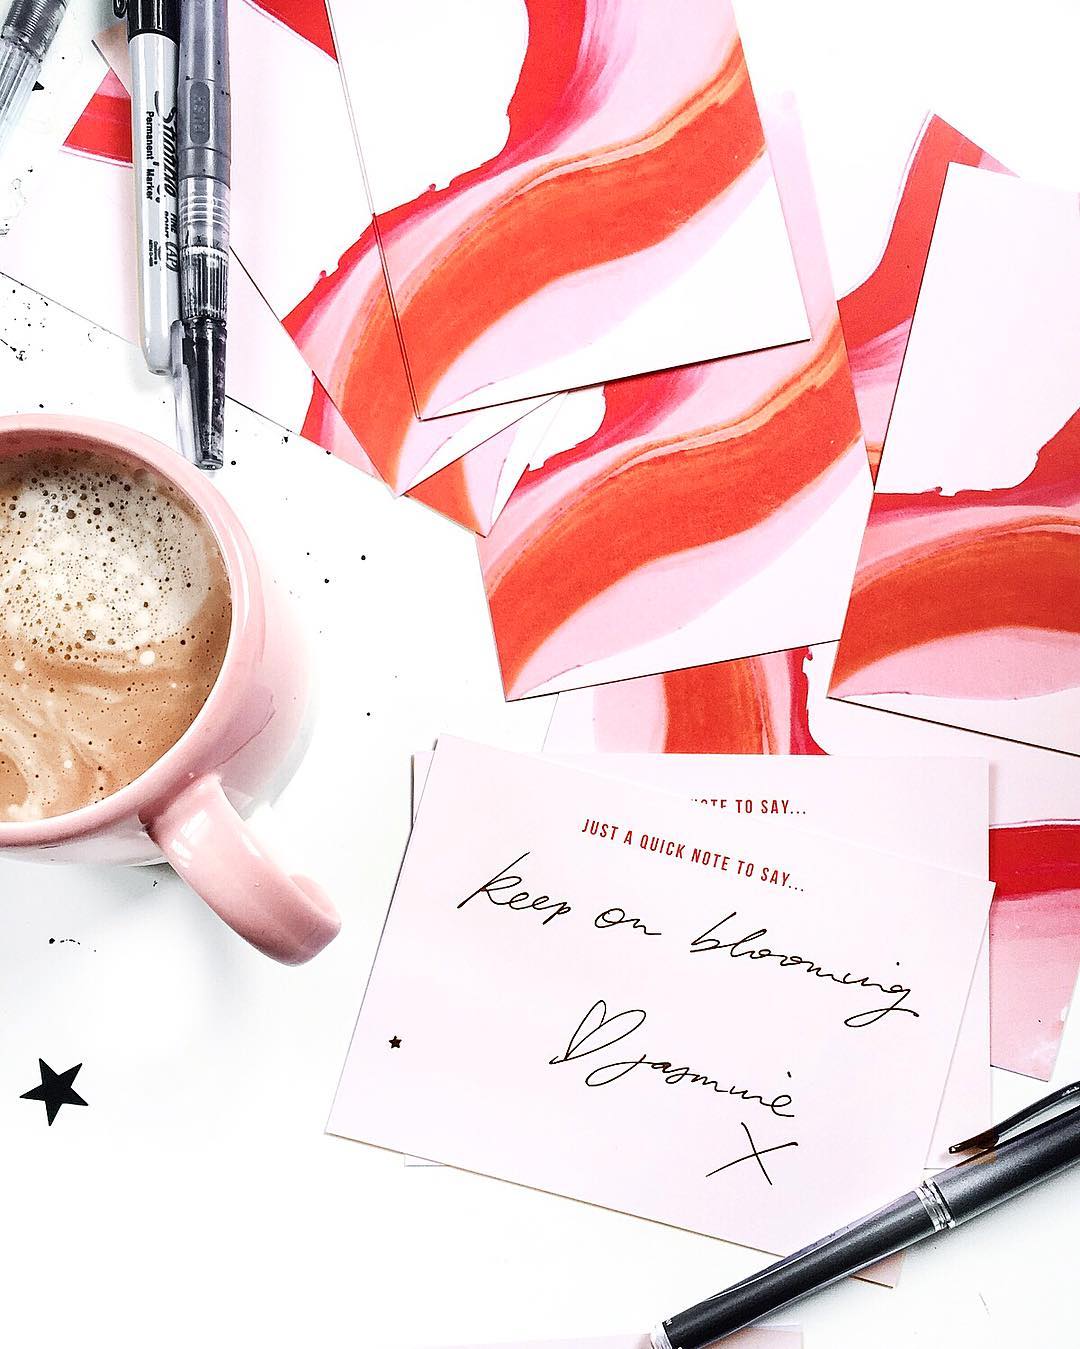 PUSH
Sharpie
Permanent Marker
NOTE TO SAY...
JUST A QUICK NOTE TO SAY...
keep on blooming
jasmine
X